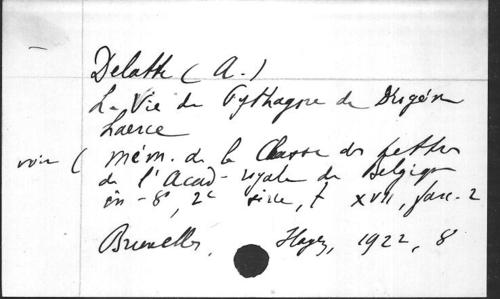 Delatte (A.)
La Vie de Pythagore de Diogène
Laerce
voir ( Mém. de la Classe des Lettres
de l'Acad. royale de Belgique
in-8°, 2e série, t XVII, fasc. 2
Bruxelles, Hayez, 1922, 8°